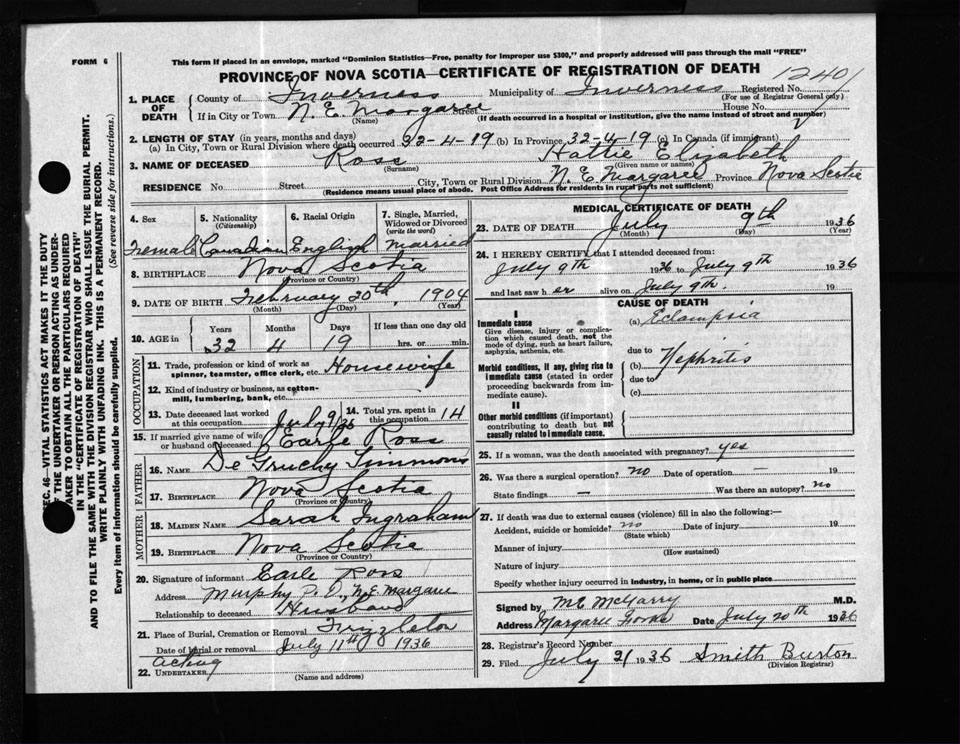 FORM 6
This form if placed in an envelope, marked "Dominion Statistics—Free, penalty for improper use $300," and properly addressed will pass through the mail "FREE"
PROVINCE OF NOVA SCOTIA—CERTIFICATE OF REGISTRATION OF DEATH
1. PLACE OF DEATH
County of Inverness Municipality of Inverness Registered No. 1240
(For use of Registrar General only)
If in City or Town N. E. Margaree Street House No.
(Name) (If death occurred in a hospital or institution, give the name instead of street and number)
2. LENGTH OF STAY (in years, months and days)
(a) In City, Town or Rural Division where death occurred 32-4-19 (b) In Province 32-4-19 (c) In Canada (if immigrant)
3. NAME OF DECEASED Ross Hattie Elizabeth
(Surname) (Given name or names)
RESIDENCE No Street City, Town or Rural Division N. E. Margaree Province Nova Scotia
(Residence means usual place of abode. Post Office Address for residents in rural parts not sufficient)
SEC. 46—VITAL STATISTICS ACT MAKES IT THE DUTY
OF THE UNDERTAKER OR PERSON ACTING AS UNDER-
TAKER TO OBTAIN ALL THE PARTICULARS REQUIRED
IN THE "CERTIFICATE OF REGISTRATION OF DEATH"
AND TO FILE THE SAME WITH THE DIVISION REGISTRAR WHO SHALL ISSUE THE BURIAL PERMIT.
WRITE PLAINLY WITH UNFADING INK. THIS IS A PERMANENT RECORD.
Every item of information should be carefully supplied. (See reverse side for instructions.)
4. Sex 5. Nationality (Citizenship) 6. Racial Origin 7. Single, Married, Widowed or Divorced (write the word)
Female Canadian English married
8. BIRTHPLACE Nova Scotia
(Province or Country)
9. DATE OF BIRTH February 20th, 1904
(Month) (Day) (Year)
10. AGE in Years Months Days If less than one day old
32 4 19 hrs. or min.
OCCUPATION
11. Trade, profession or kind of work as spinner, teamster, office clerk, etc. Housewife
12. Kind of industry or business, as cotton-mill, lumbering, bank, etc.
13. Date deceased last worked at this occupation July 9/36 14. Total yrs. spent in this occupation 14
15. If married give name of wife or husband of deceased Earle Ross
FATHER
16. NAME De Gruchy Timmons
17. BIRTHPLACE Nova Scotia
(Province or Country)
MOTHER
18. MAIDEN NAME Sarah Ingraham
19. BIRTHPLACE Nova Scotia
(Province or Country)
20. Signature of informant Earle Ross
Address Murphy P. O., N. E. Margaree
Relationship to deceased Husband
21. Place of Burial, Cremation or Removal Frizzleton
Date of burial or removal July 11th 1936
acting
22. UNDERTAKER
(Name and address)
MEDICAL CERTIFICATE OF DEATH
23. DATE OF DEATH July 9th 1936
(Month) (Day) (Year)
24. I HEREBY CERTIFY that I attended deceased from:
July 9th 1936 to July 9th 1936
and last saw her alive on July 9th. 19
CAUSE OF DEATH
I
Immediate cause
Give disease, injury or complication which caused death, not the mode of dying, such as heart failure, asphyxia, asthenia, etc.
(a) Eclampsia
due to
Morbid conditions, if any, giving rise to immediate cause (stated in order proceeding backwards from immediate cause).
(b) Nephritis
due to
(c)
II
Other morbid conditions (if important) contributing to death but not causally related to immediate cause.
25. If a woman, was the death associated with pregnancy? yes
26. Was there a surgical operation? no Date of operation — 19
State findings — Was there an autopsy? no
27. If death was due to external causes (violence) fill in also the following:—
Accident, suicide or homicide? no Date of injury 19
(State which)
Manner of injury
(How sustained)
Nature of injury
Specify whether injury occurred in industry, in home, or in public place
Signed by M.D.
Address Margaree Forks Date July 20th 1936
28. Registrar's Record Number
29. Filed July 21 1936 Smith Burton
(Division Registrar)